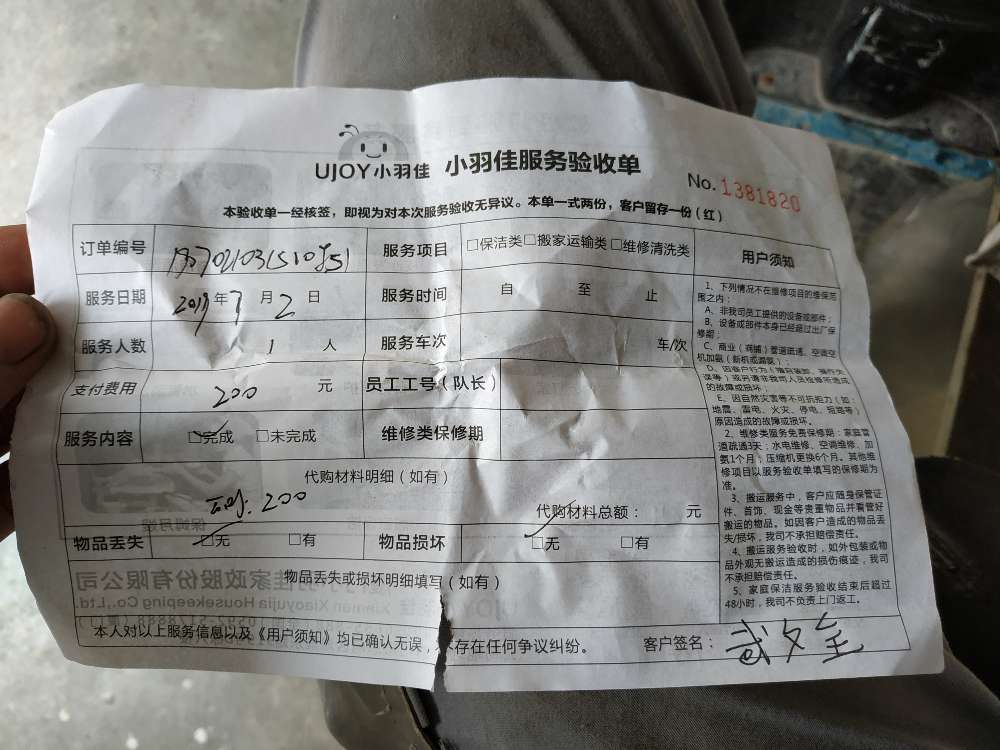 UJOY小羽佳 小羽佳服务验收单
No. 1381820
本验收单一经核签，即视为对本次服务验收无异议。本单一式两份，客户留存一份（红）
订单编号
服务项目 □保洁类□搬家运输类□维修清洗类
服务日期 2019年7月2日
服务时间 自 至 止
服务人数 1 人
服务车次 车/次
支付费用 200 元
员工工号（队长）
服务内容 □完成 □未完成
维修类保修期
代购材料明细（如有）
200
代购材料总额： 元
物品丢失 □无 □有
物品损坏 □无 □有
物品丢失或损坏明细填写（如有）
用户须知
1、下列情况不在维修项目的维保范
围之内：
A、非我司员工提供的设备或部件；
B、设备或部件本身已经超过出厂保
修期；
C、商业（商铺）管道疏通、空调空
机加氨（新机或漏氨）
的故障或损坏；
E、因自然灾害等不可抗拒力（如：
地震、雷电、火灾、停电、短路等）
原因造成的故障或损坏。
2、维修类服务免费保修期：家庭管
道疏通3天；水电维修、空调维修、加
氨1个月；压缩机更换6个月。其他维
修项目以服务验收单填写的保修期为
准。
3、搬运服务中，客户应随身保管证
件、首饰、现金等贵重物品并看管好
搬运的物品。如因客户造成的物品丢
失/损坏，我司不承担赔偿责任。
4、搬运服务验收时，如外包装或物
品外观无搬运造成的损伤痕迹，我司
不承担赔偿责任。
5、家庭保洁服务验收结束后超过
48小时，我司不负责上门返工。
本人对以上服务信息以及《用户须知》均已确认无误，不存在任何争议纠纷。
客户签名：